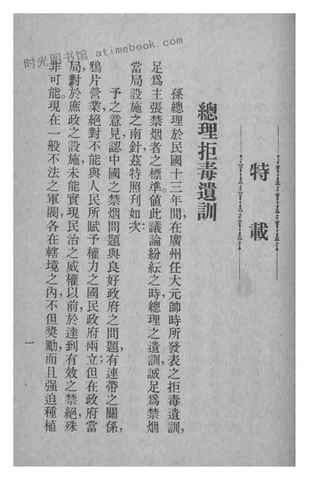 时光图书馆 atimebook.com
特載
總理拒毒遺訓
孫總理於民國十三年間、在廣州任大元帥時所發表之拒毒遺訓、
足爲主張禁烟者之標準、值此議論紛紜之時、總理之遺訓、誠足爲禁烟
當局設施之南針、茲特照刊如次
予之意見、認中國之禁烟問題與良好政府之問題、有連帶之關係、
鴉片營業、絕對不能與人民所賦予權力之國民政府兩立、但在政府當
局對於庶政之設施、未能實現民治之威權以前、於達到有效之禁絕殊
非可能、現在一般不法之軍閥、各在轄境之內、不但獎勵、而且强迫種植
一